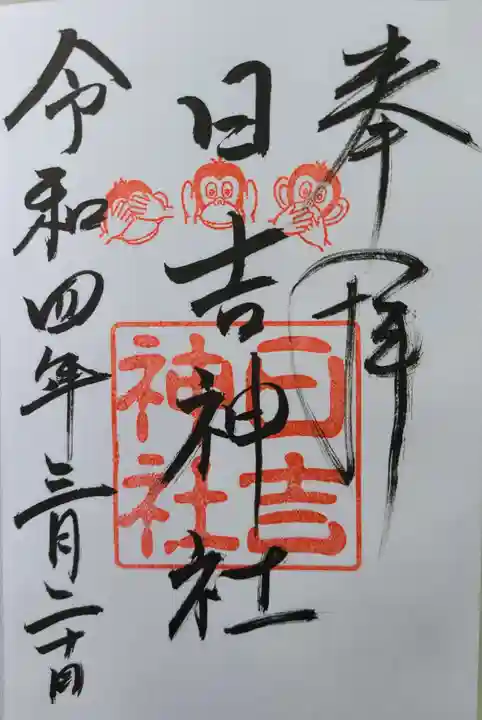 奉拝
日吉神社
日吉神社
令和四年三月二十日